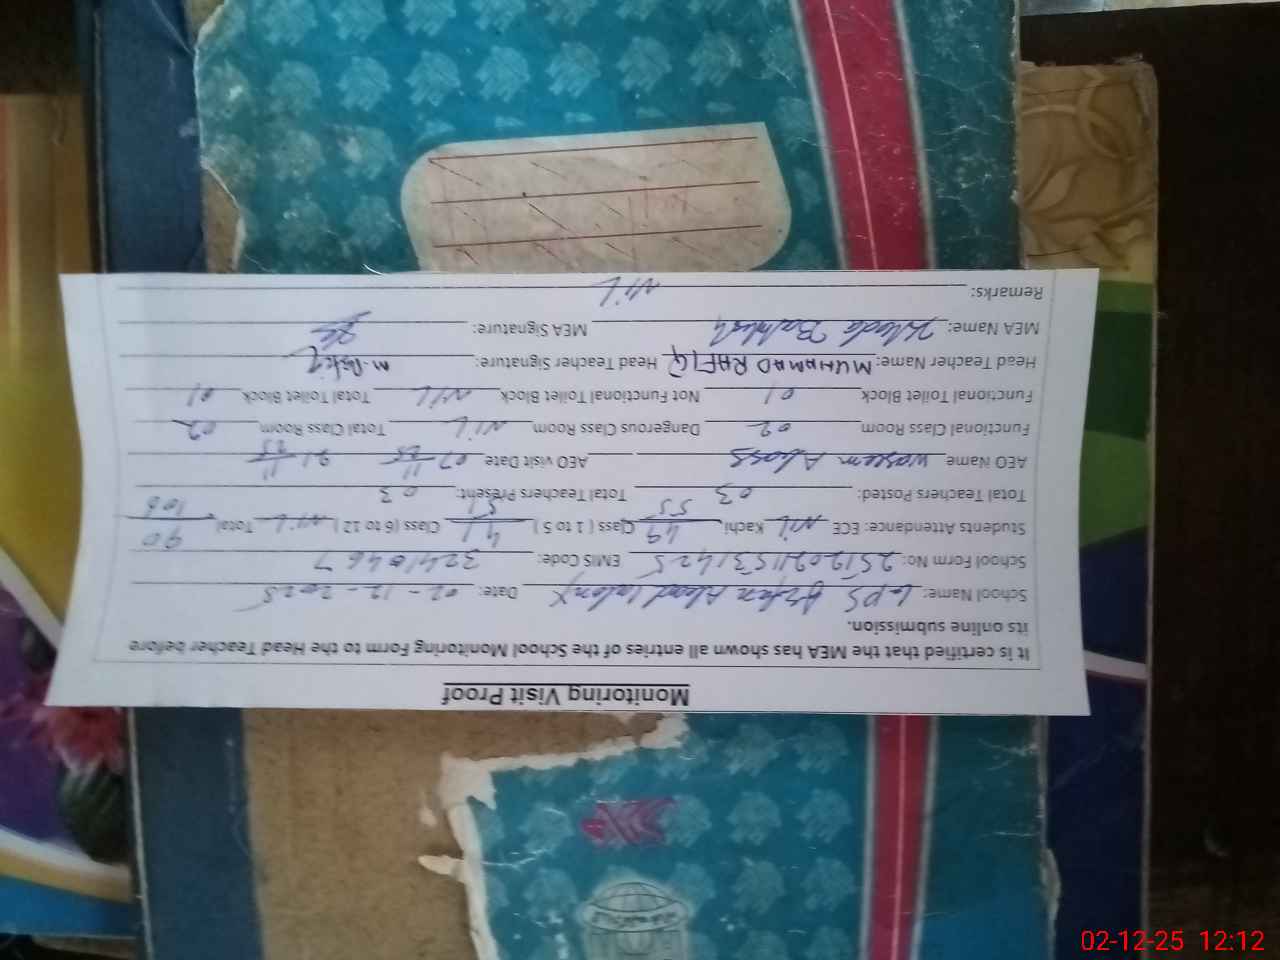 Monitoring Visit Proof
It is certified that the MEA has shown all entries of the School Monitoring Form to the Head Teacher before
its online submission.
School Name: GPS Date: 02-12-2025
School Form No: EMIS Code:
Students Attendance: ECE NIL Kachi 49/55 Class ( 1 to 5 ) 41/51 Class (6 to 12 ) NIL Total 90/106
Total Teachers Posted: 03 Total Teachers Present: 03
AEO Name Waseem Abass AEO visit Date
Functional Class Room 02 Dangerous Class Room NIL Total Class Room 02
Functional Toilet Block 01 Not Functional Toilet Block NIL Total Toilet Block 01
Head Teacher Name: MUHAMAD RAFIQ Head Teacher Signature:
MEA Name: MEA Signature:
Remarks: NIL
02-12-25 12:12